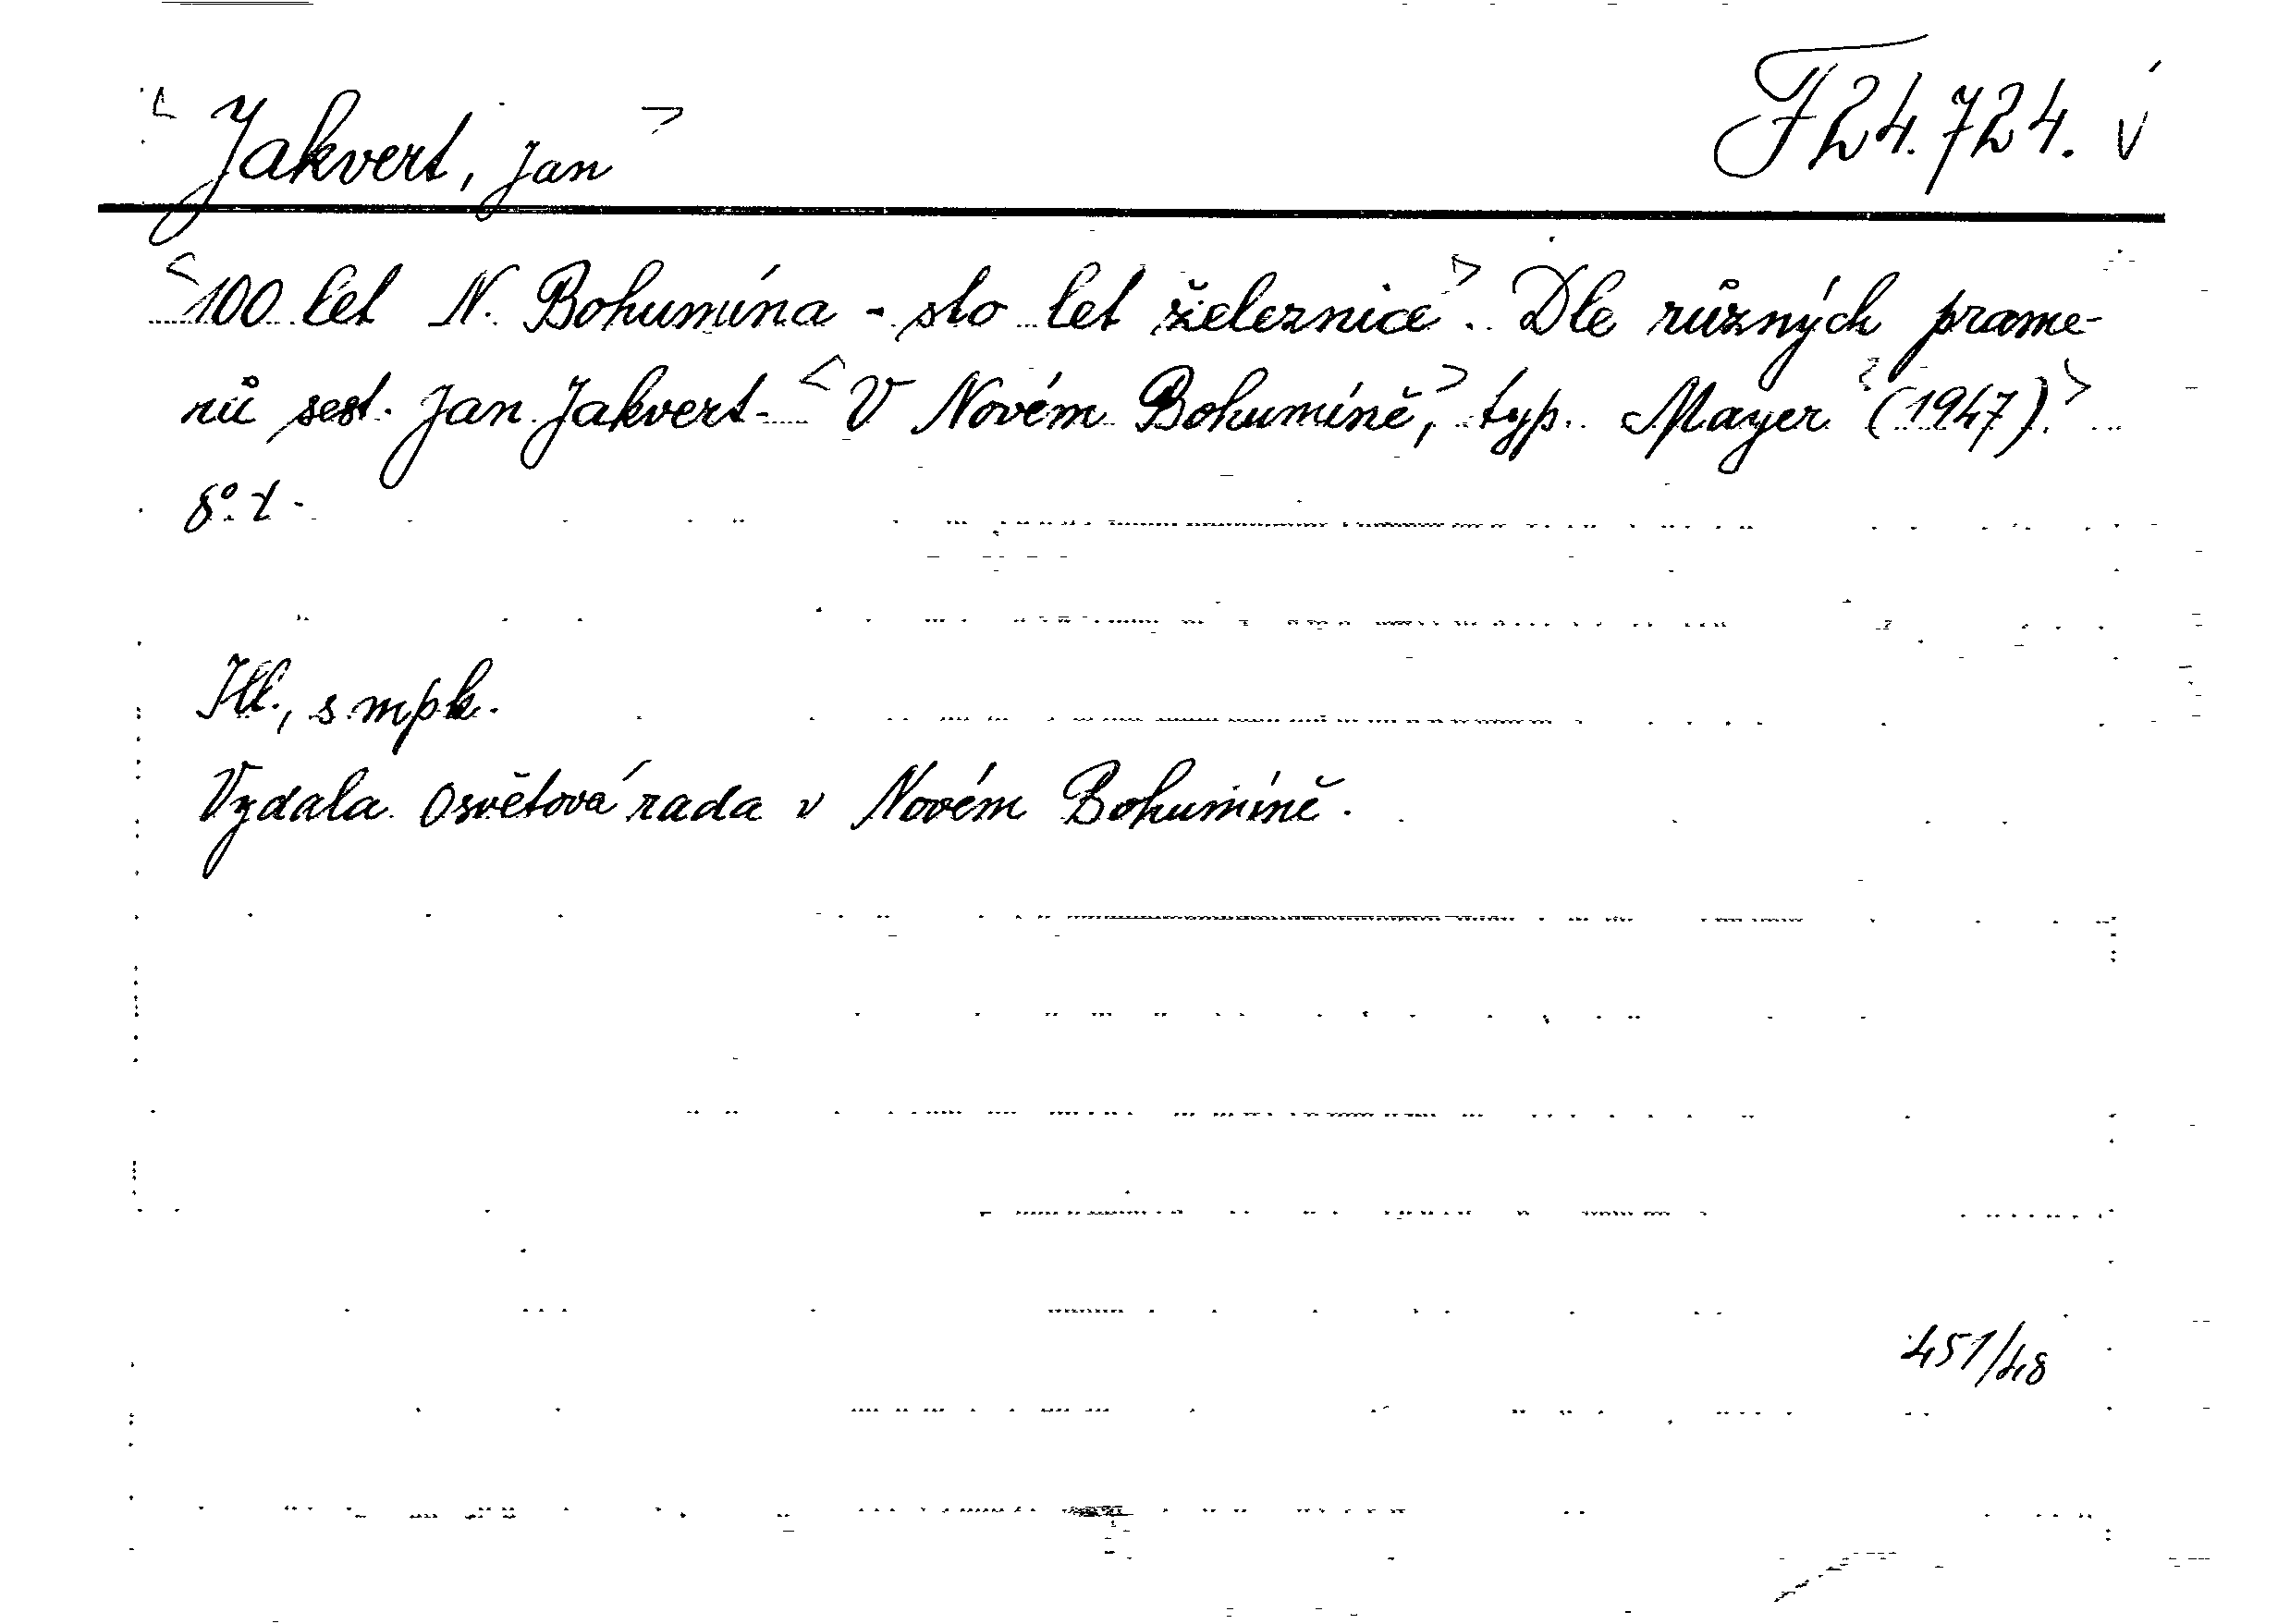 <Jakvert, Jan> F 24.724. v
<100 let N. Bohumína - sto let železnice>. Dle různých prame-
nů sest. Jan Jakvert. <V Novém Bohumíně,> typ. Mayer <(1947).>
8°. 
Ill., s mpk.
Vydala Osvětová rada v Novém Bohumíně.
451/48